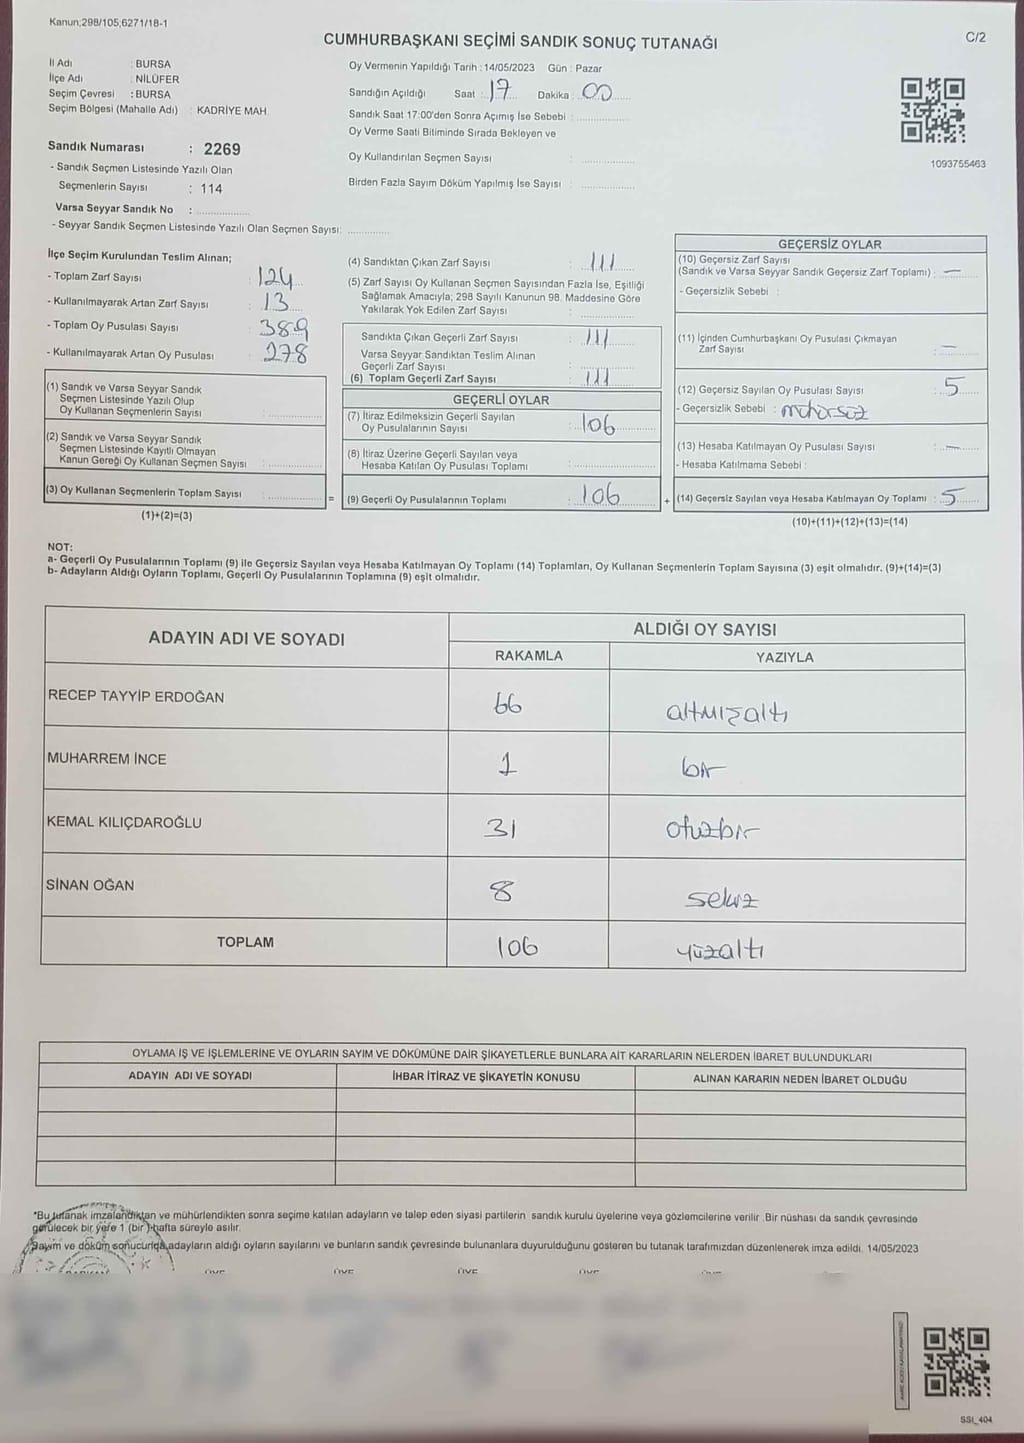 Kanun;298/105;6271/18-1
C/2
CUMHURBAŞKANI SEÇİMİ SANDIK SONUÇ TUTANAĞI
İl Adı : BURSA
İlçe Adı : NİLÜFER
Seçim Çevresi : BURSA
Seçim Bölgesi (Mahalle Adı) : KADRİYE MAH.
Sandık Numarası : 2269
- Sandık Seçmen Listesinde Yazılı Olan
Seçmenlerin Sayısı : 114
Varsa Seyyar Sandık No :
- Seyyar Sandık Seçmen Listesinde Yazılı Olan Seçmen Sayısı:
Oy Vermenin Yapıldığı Tarih : 14/05/2023 Gün : Pazar
Sandığın Açıldığı Saat : 17 Dakika : 00
Sandık Saat 17:00'den Sonra Açımış İse Sebebi :
Oy Verme Saati Bitiminde Sırada Bekleyen ve
Oy Kullandırılan Seçmen Sayısı :
Birden Fazla Sayım Döküm Yapılmış İse Sayısı :
1093755463
İlçe Seçim Kurulundan Teslim Alınan;
- Toplam Zarf Sayısı : 124
- Kullanılmayarak Artan Zarf Sayısı : 13
- Toplam Oy Pusulası Sayısı : 389
- Kullanılmayarak Artan Oy Pusulası : 278
(1) Sandık ve Varsa Seyyar Sandık
Seçmen Listesinde Yazılı Olup
Oy Kullanan Seçmenlerin Sayısı :
(2) Sandık ve Varsa Seyyar Sandık
Seçmen Listesinde Kayıtlı Olmayan
Kanun Gereği Oy Kullanan Seçmen Sayısı :
(3) Oy Kullanan Seçmenlerin Toplam Sayısı : =
(1)+(2)=(3)
(4) Sandıktan Çıkan Zarf Sayısı : 111
(5) Zarf Sayısı Oy Kullanan Seçmen Sayısından Fazla İse, Eşitliği
Sağlamak Amacıyla; 298 Sayılı Kanunun 98. Maddesine Göre
Yakılarak Yok Edilen Zarf Sayısı :
Sandıkta Çıkan Geçerli Zarf Sayısı : 111
Varsa Seyyar Sandıktan Teslim Alınan
Geçerli Zarf Sayısı :
(6) Toplam Geçerli Zarf Sayısı : 111
GEÇERLİ OYLAR
(7) İtiraz Edilmeksizin Geçerli Sayılan
Oy Pusulalarının Sayısı : 106
(8) İtiraz Üzerine Geçerli Sayılan veya
Hesaba Katılan Oy Pusulası Toplamı :
(9) Geçerli Oy Pusulalarının Toplamı : 106 +
GEÇERSİZ OYLAR
(10) Geçersiz Zarf Sayısı
(Sandık ve Varsa Seyyar Sandık Geçersiz Zarf Toplamı) : —
- Geçersizlik Sebebi :
(11) İçinden Cumhurbaşkanı Oy Pusulası Çıkmayan
Zarf Sayısı : —
(12) Geçersiz Sayılan Oy Pusulası Sayısı : 5
- Geçersizlik Sebebi : mühürsüz
(13) Hesaba Katılmayan Oy Pusulası Sayısı : —
- Hesaba Katılmama Sebebi :
(14) Geçersiz Sayılan veya Hesaba Katılmayan Oy Toplamı : 5
(10)+(11)+(12)+(13)=(14)
NOT:
a- Geçerli Oy Pusulalarının Toplamı (9) ile Geçersiz Sayılan veya Hesaba Katılmayan Oy Toplamı (14) Toplamları, Oy Kullanan Seçmenlerin Toplam Sayısına (3) eşit olmalıdır. (9)+(14)=(3)
b- Adayların Aldığı Oyların Toplamı, Geçerli Oy Pusulalarının Toplamına (9) eşit olmalıdır.
ADAYIN ADI VE SOYADI ALDIĞI OY SAYISI
RAKAMLA YAZIYLA
RECEP TAYYİP ERDOĞAN 66 altmışaltı
MUHARREM İNCE 1 bir
KEMAL KILIÇDAROĞLU 31 otuzbir
SİNAN OĞAN 8 sekiz
TOPLAM 106 yüzaltı
OYLAMA İŞ VE İŞLEMLERİNE VE OYLARIN SAYIM VE DÖKÜMÜNE DAİR ŞİKAYETLERLE BUNLARA AİT KARARLARIN NELERDEN İBARET BULUNDUKLARI
ADAYIN ADI VE SOYADI İHBAR İTİRAZ VE ŞİKAYETİN KONUSU ALINAN KARARIN NEDEN İBARET OLDUĞU
*Bu tutanak imzalandıktan ve mühürlendikten sonra seçime katılan adayların ve talep eden siyasi partilerin sandık kurulu üyelerine veya gözlemcilerine verilir. Bir nüshası da sandık çevresinde
görülecek bir yere 1 (bir) hafta süreyle asılır.
Sayım ve döküm sonucunda adayların aldığı oyların sayılarını ve bunların sandık çevresinde bulunanlara duyurulduğunu gösteren bu tutanak tarafımızdan düzenlenerek imza edildi. 14/05/2023
ÜYE ÜYE ÜYE ÜYE
SSI_404